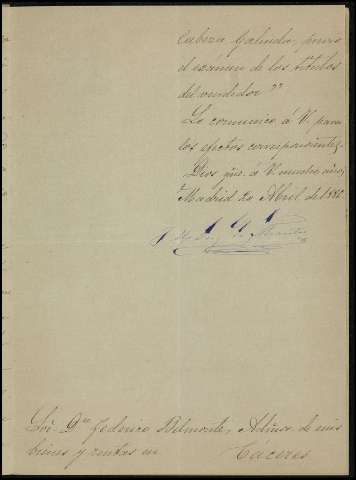 Cabeza Galindo, previo
el exámen de los títulos
del vendedor "
Lo comunico á V. para
los efectos correspondientes.
Dios gue. á V. muchos años,
Madrid 20 Abril de
Sor. Dn. Federico Belmonte, Admor. de mis
bienes y rentas en Cáceres